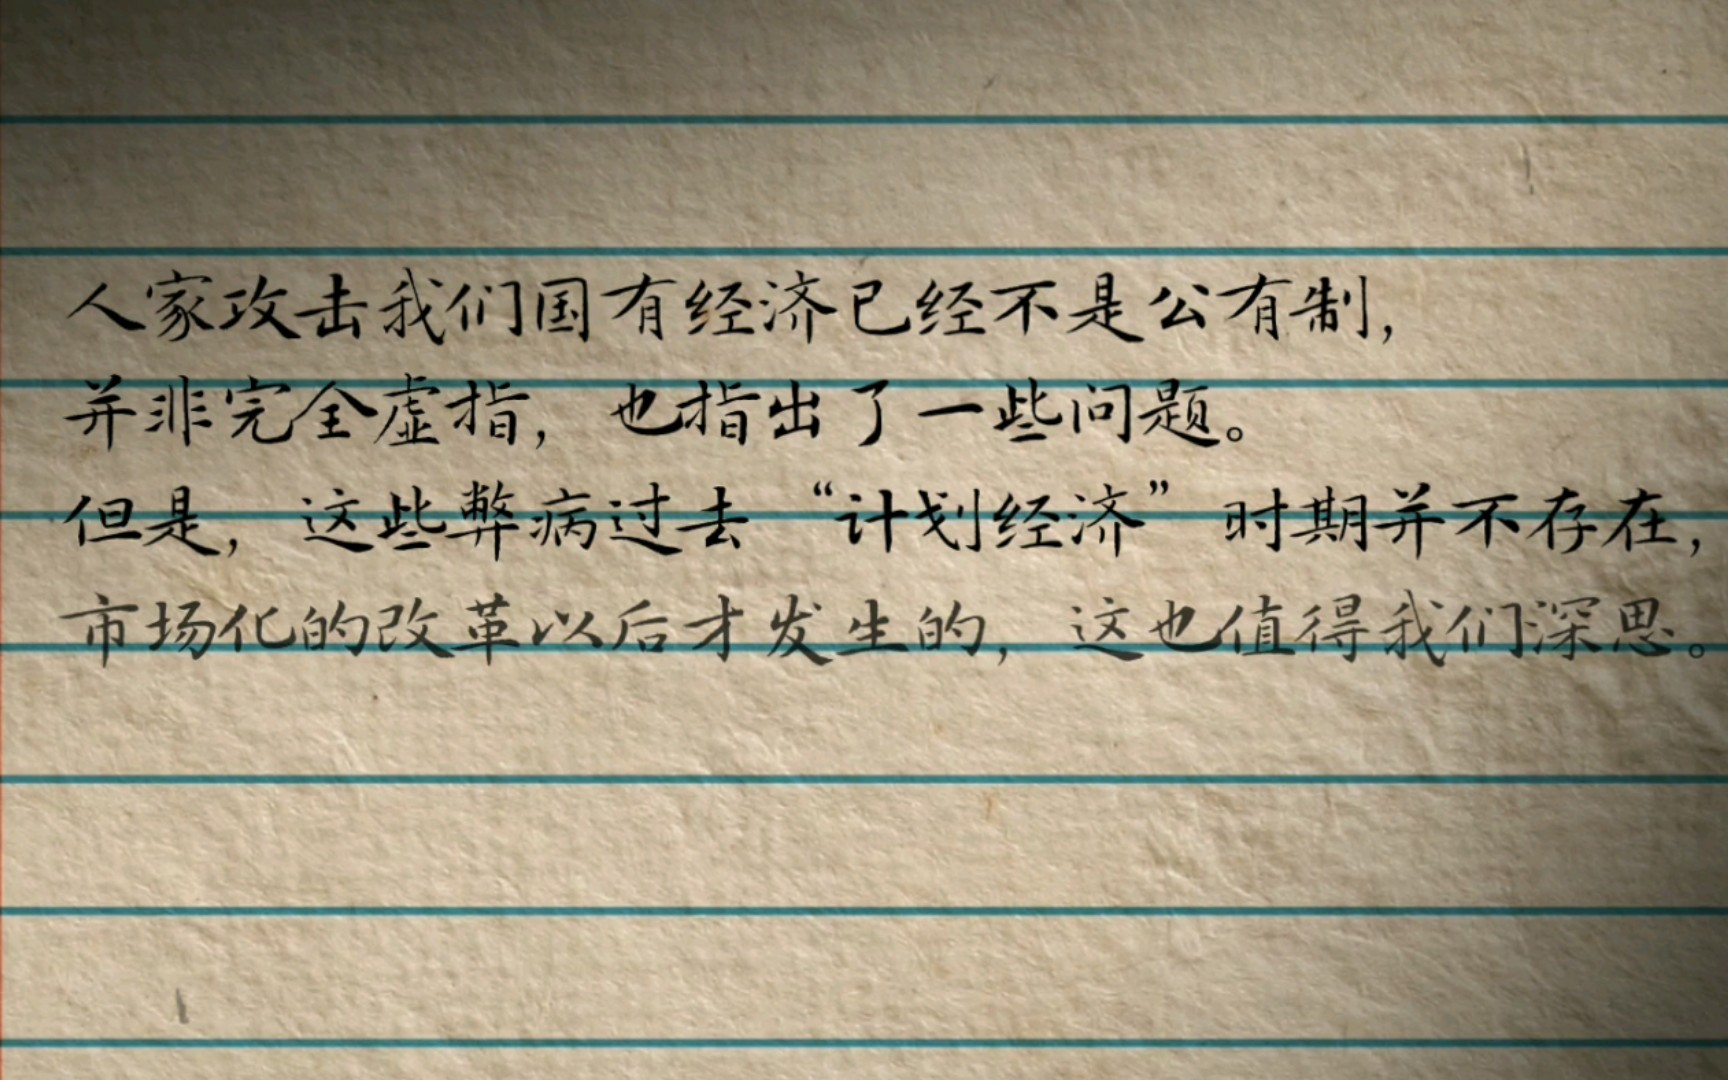 人家攻击我们国有经济已经不是公有制，
并非完全虚指，也指出了一些问题。
但是，这些弊病过去“计划经济”时期并不存在，
市场化的改革以后才发生的，这也值得我们深思。